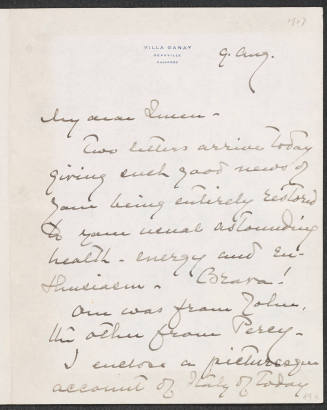 1917
VILLA GANAY
DEAUVILLE
CALVADOS
9. Aug.
My dear
Two letters arrive today
giving such good news of
your being entirely restored
to your usual astounding
health - energy and en-
thusiasm - Brava!
One was from John,
the other from Percy -
I enclose a picturesque
account of Italy of today